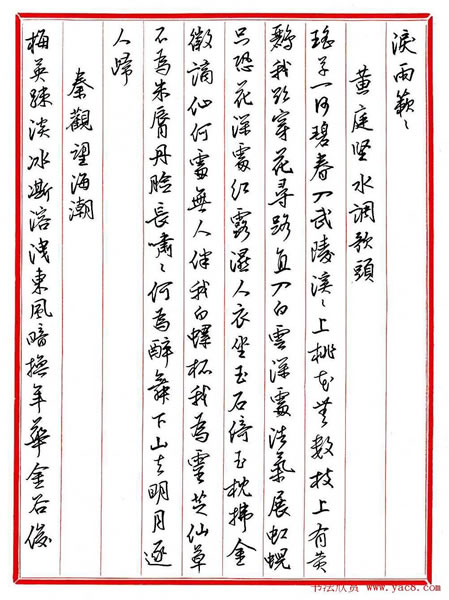 淚雨蔌〻
黄庭坚水调歌頭
瑶草一何碧春入武陵溪〻上桃花無数枝上有黄
鸝我欲穿花尋路直入白雲深處浩氣展虹蜺
只恐花深處红露濕人衣坐玉石倚玉枕拂金
徽謫仙何處無人伴我白螺杯我為靈芝仙草
不為朱脣丹臉長嘯〻何為醉舞下山去明月逐
人歸
秦觀望海潮
梅英疎淡冰澌溶洩東風暗換年華金谷俊
书法欣赏 www.yac8.com